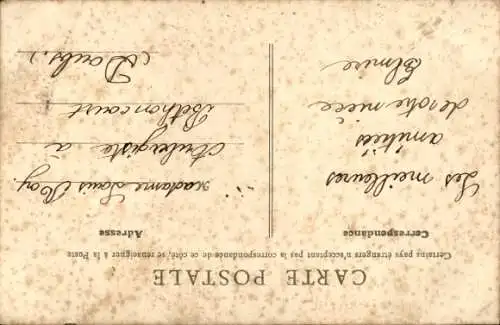 CARTE POSTALE
Certains pays étrangers n'acceptant pas la correspondance de ce côté, se renseigner à la Poste
Correspondance
Les meilleures
amitiés
de votre nièce
Elmire
Adresse
Madame Louis Roy.
Aubergiste à
Bethoncourt
(Doubs.)